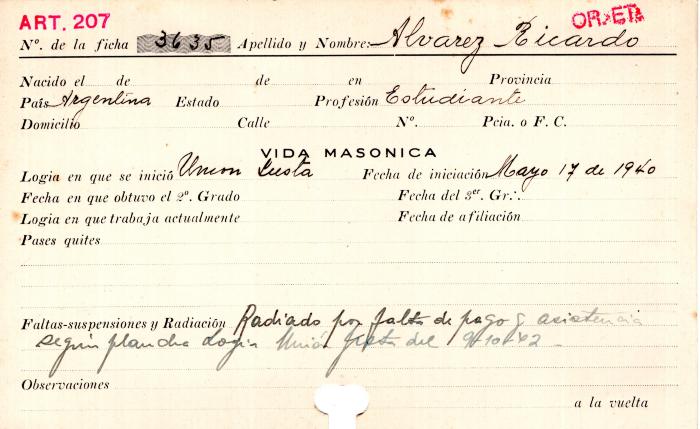 ART. 207
Nº. de la ficha 3635 Apellido y Nombre: Alvarez Ricardo
Nacido el de de en Provincia
País Argentina Estado Profesión Estudiante
Domicilio Calle Nº. Pcia. o F. C.
VIDA MASONICA
Logia en que se inició Union Justa Fecha de iniciación Mayo 17 de 1940
Fecha en que obtuvo el 2º. Grado Fecha del 3er. Gr∴
Logia en que trabaja actualmente Fecha de afiliación
Pases quites
Faltas-suspensiones y Radiación Radiado por falta de pago y asistencia
según plancha Logia Unión Justa del
Observaciones
a la vuelta